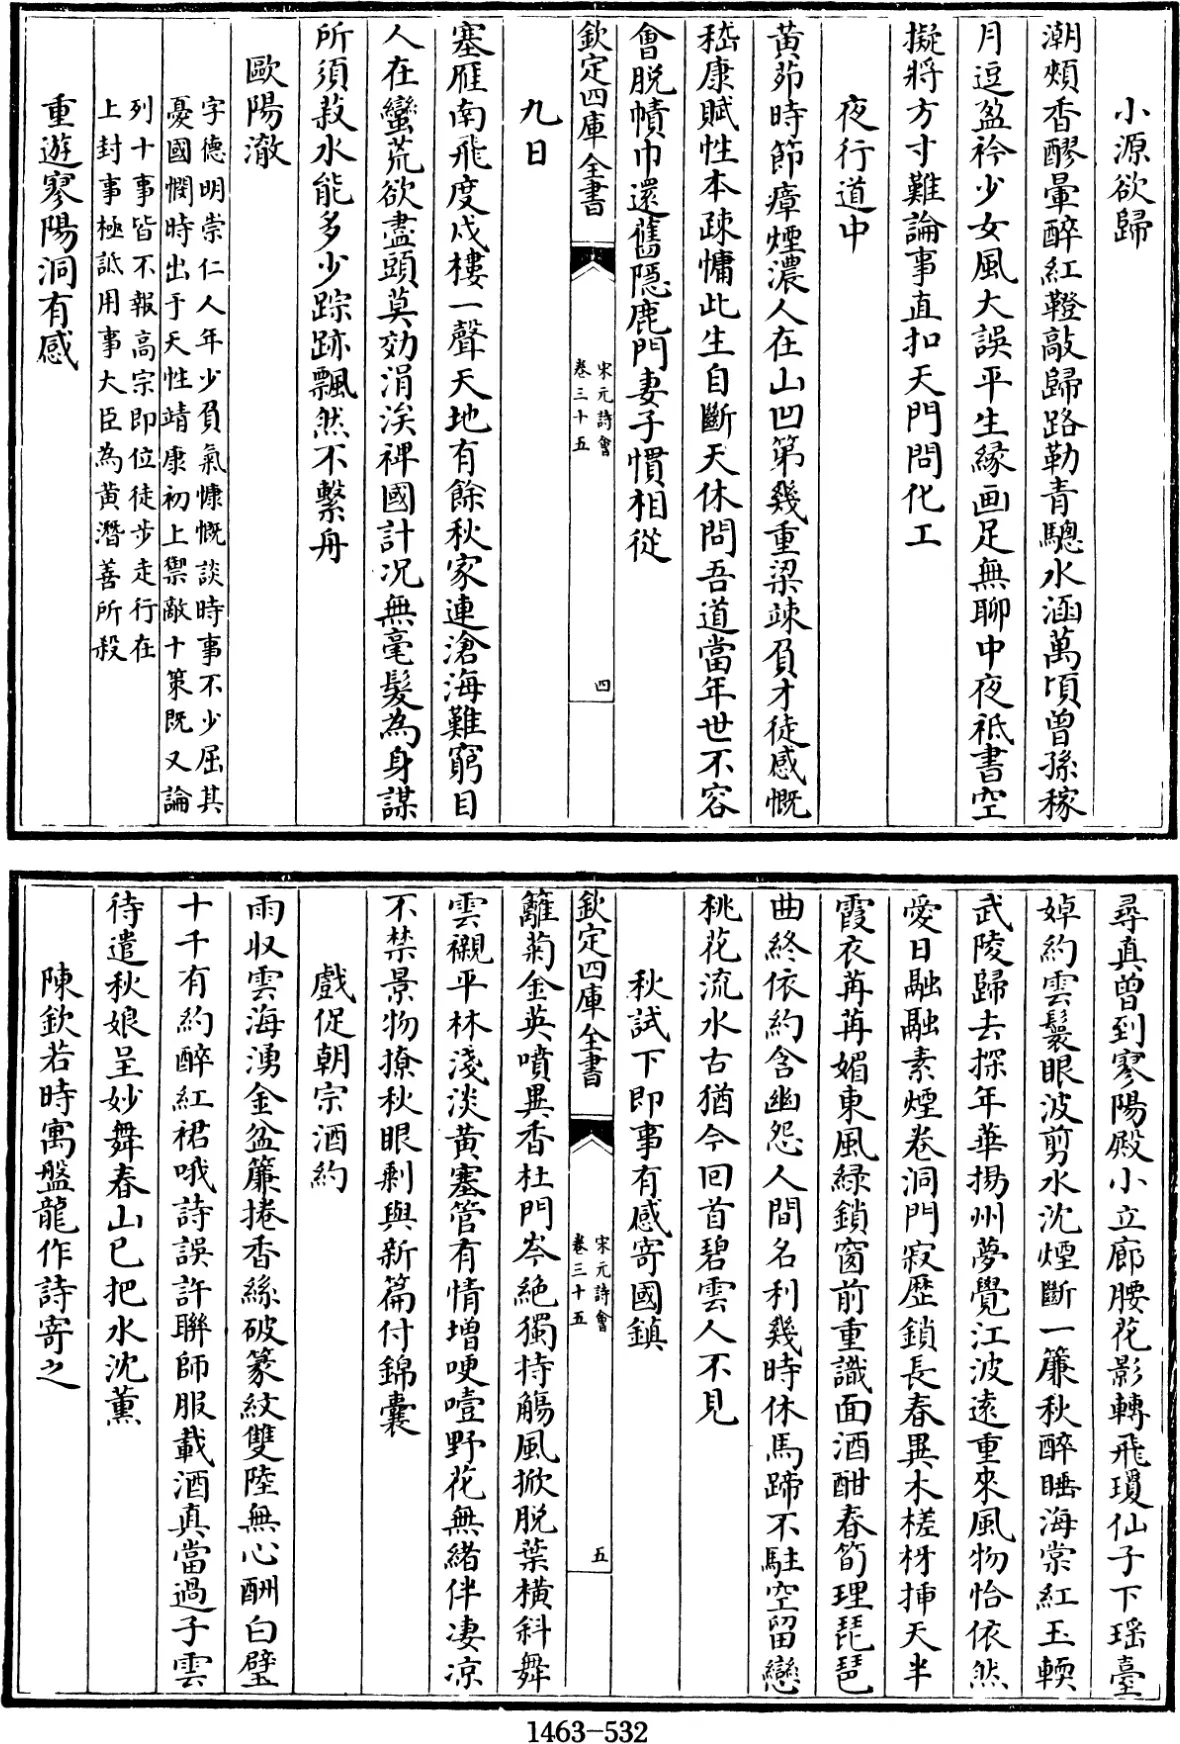 小源欲歸
潮頰香醪暈醉紅鞚敲歸路勒青驄水涵萬頃曾孫稼
月逗盈衿少女風大誤平生緣画足無聊中夜祇書空
擬將方寸難論事直扣天門問化工
夜行道中
黃茆時節瘴煙濃人在山凹第幾重梁竦負才徒感慨
嵇康賦性本疎慵此生自斷天休問吾道當年世不容
會脱幘巾還舊隱鹿門妻子慣相從
欽定四庫全書
宋元詩會
卷三十五
四
九日
塞雁南飛度戍樓一聲天地有餘秋家連滄海難窮目
人在蠻荒欲盡頭莫効涓涘裨國計况無毫髮為身謀
所須菽水能多少踪跡飄然不繫舟
歐陽澈
字德明崇仁人年少負氣慷慨談時事不少屈其
憂國憫時出于天性靖康初上禦敵十策既又論
列十事皆不報高宗即位徒步走行在
上封事極詆用事大臣為黄潛善所殺
重遊寥陽洞有感
尋真曾到寥陽殿小立廊腰花影轉飛瓊仙子下瑶臺
婥約雲鬟眼波剪水沈煙斷一簾秋醉睡海棠紅玉輭
武陵歸去探年華揚州夢覺江波遠重來風物怡依然
愛日融融素煙卷洞門寂歴鎖長春異木槎枒揷天半
霞衣苒苒媚東風緑鎖窗前重識面酒酣春筍理琵琶
曲終依約含幽怨人間名利幾時休馬蹄不駐空留戀
桃花流水古猶今回首碧雲人不見
秋試下即事有感寄國鎮
欽定四庫全書
宋元詩會
卷三十五
五
籬菊金英噴異香杜門岑絶獨持觴風掀脱葉横斜舞
雲襯平林淺淡黄塞管有情増哽噎野花無緒伴凄凉
不禁景物撩秋眼剰與新篇付錦囊
戲促朝宗酒約
雨収雲海湧金盆簾捲香絲破篆紋雙陸無心酬白璧
十千有約醉紅裙哦詩誤許聨師服載酒真當過子雲
待遣秋娘呈妙舞春山已把水沈薫
陳欽若時寓盤龍作詩寄之
1463-532